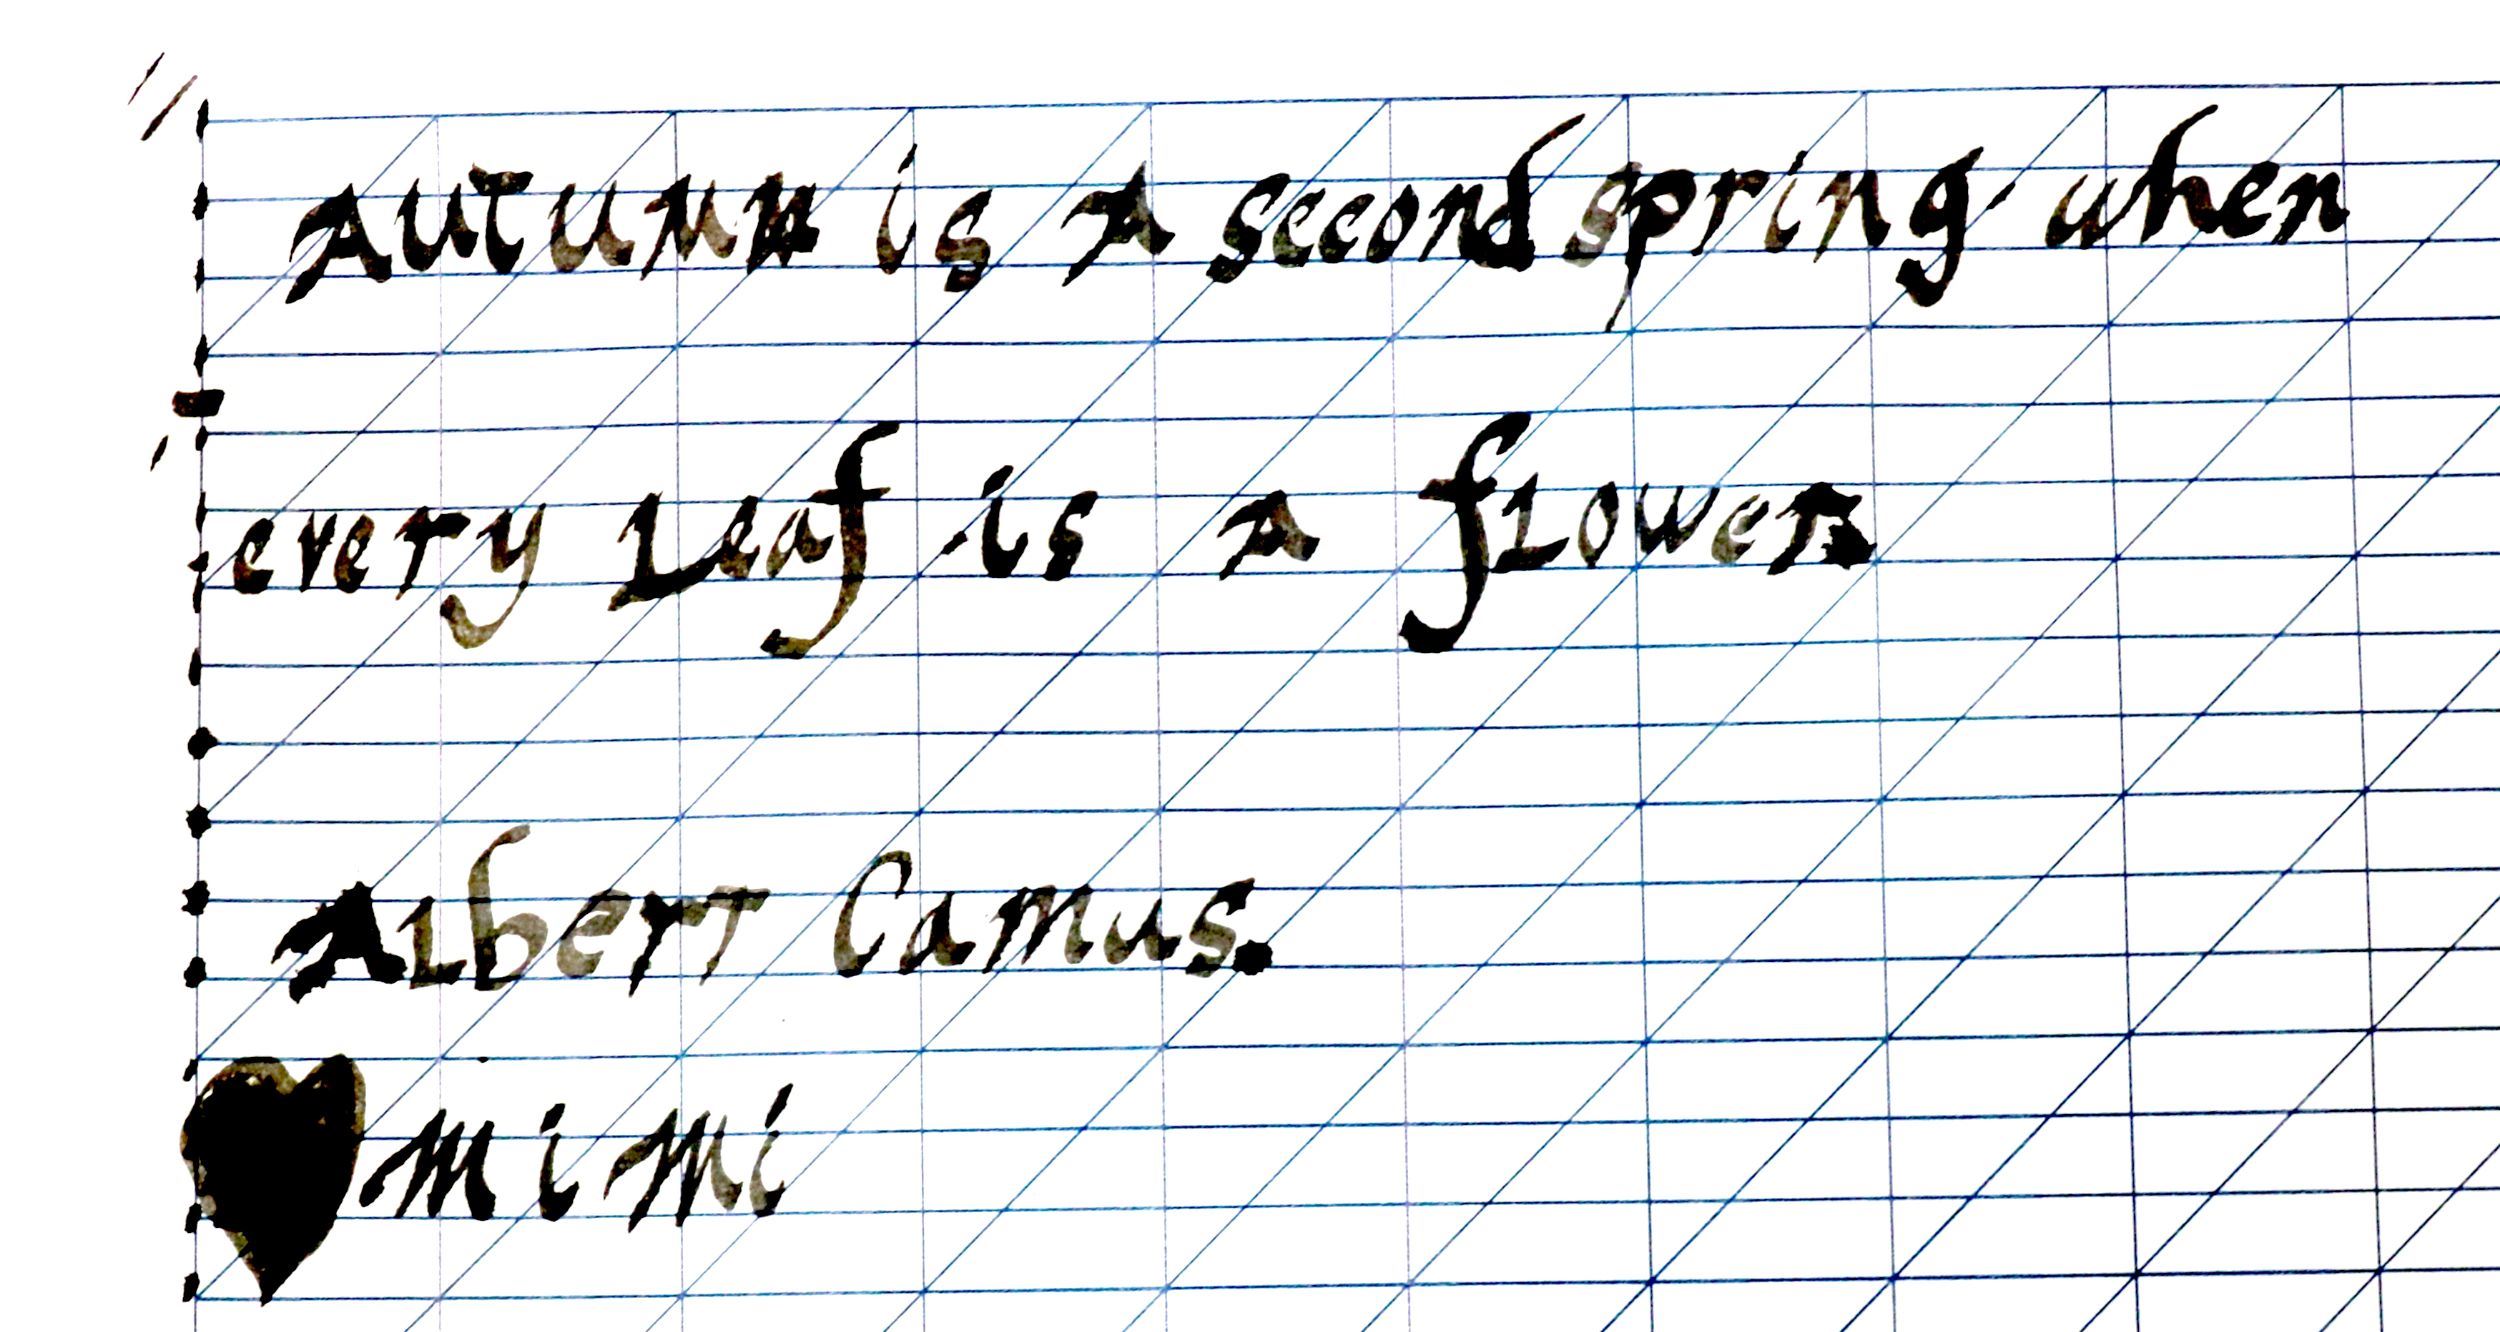 Autumn is a second spring when
every Leaf is a flower
Albert Camus.
mimi